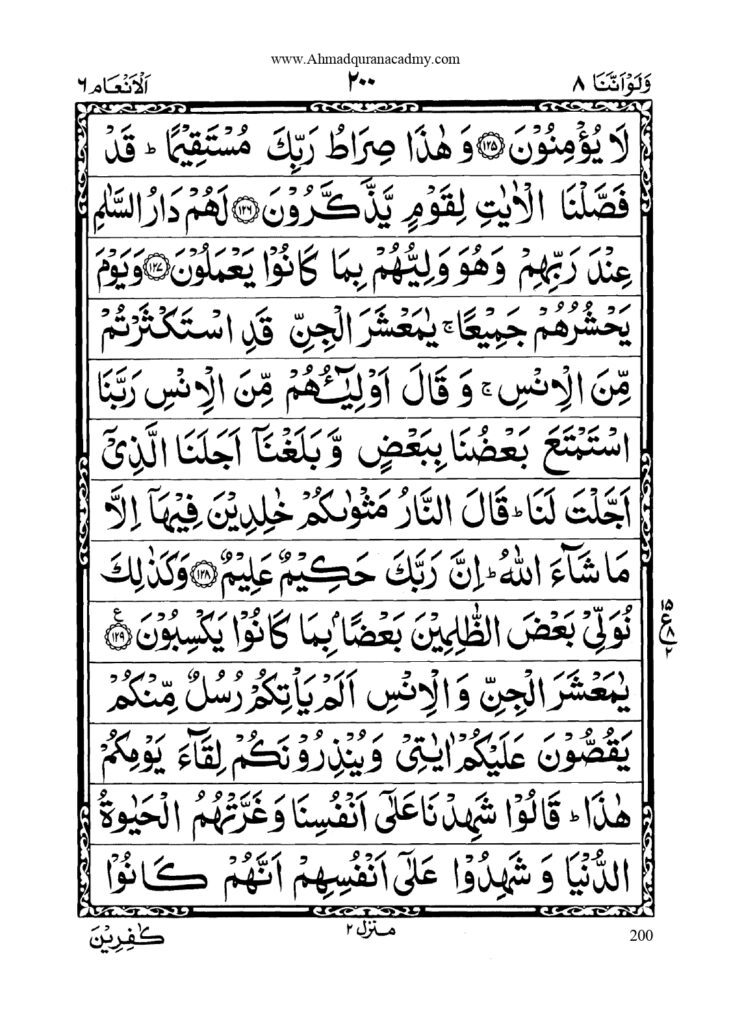 www.Ahmadquranacadmy.com
وَلَوْ اَنَّنَا ٨ ٢٠٠ اَلْاَنْعَام ٦
لَا يُؤْمِنُوْنَ ﴿١٢٥﴾ وَ هٰذَا صِرَاطُ رَبِّكَ مُسْتَقِيْمًا ؕ قَدْ
فَصَّلْنَا الْاٰيٰتِ لِقَوْمٍ يَّذَّكَّرُوْنَ ﴿١٢٦﴾ لَهُمْ دَارُ السَّلٰمِ
عِنْدَ رَبِّهِمْ وَهُوَ وَلِيُّهُمْ بِمَا كَانُوْا يَعْمَلُوْنَ ﴿١٢٧﴾ وَيَوْمَ
يَحْشُرُهُمْ جَمِيْعًا ۚ يٰمَعْشَرَ الْجِنِّ قَدِ اسْتَكْثَرْتُمْ
مِّنَ الْاِنْسِ ۚ وَ قَالَ اَوْلِيٰٓـُٔهُمْ مِّنَ الْاِنْسِ رَبَّنَا
اسْتَمْتَعَ بَعْضُنَا بِبَعْضٍ وَّ بَلَغْنَاۤ اَجَلَنَا الَّذِيْۤ
اَجَّلْتَ لَنَا ؕ قَالَ النَّارُ مَثْوٰىكُمْ خٰلِدِيْنَ فِيْهَاۤ اِلَّا
مَا شَآءَ اللّٰهُ ؕ اِنَّ رَبَّكَ حَكِيْمٌ عَلِيْمٌ ﴿١٢٨﴾ وَكَذٰلِكَ
نُوَلِّيْ بَعْضَ الظّٰلِمِيْنَ بَعْضًۢا بِمَا كَانُوْا يَكْسِبُوْنَ ﴿١٢٩﴾ ع
١٥ ع ٨ ٢
يٰمَعْشَرَ الْجِنِّ وَ الْاِنْسِ اَلَمْ يَاْتِكُمْ رُسُلٌ مِّنْكُمْ
يَقُصُّوْنَ عَلَيْكُمْ اٰيٰتِيْ وَيُنْذِرُوْنَكُمْ لِقَآءَ يَوْمِكُمْ
هٰذَا ؕ قَالُوْا شَهِدْنَا عَلٰۤى اَنْفُسِنَا وَغَرَّتْهُمُ الْحَيٰوةُ
الدُّنْيَا وَ شَهِدُوْا عَلٰۤى اَنْفُسِهِمْ اَنَّهُمْ كَانُوْا
منزل ٢
كٰفِرِيْنَ
200